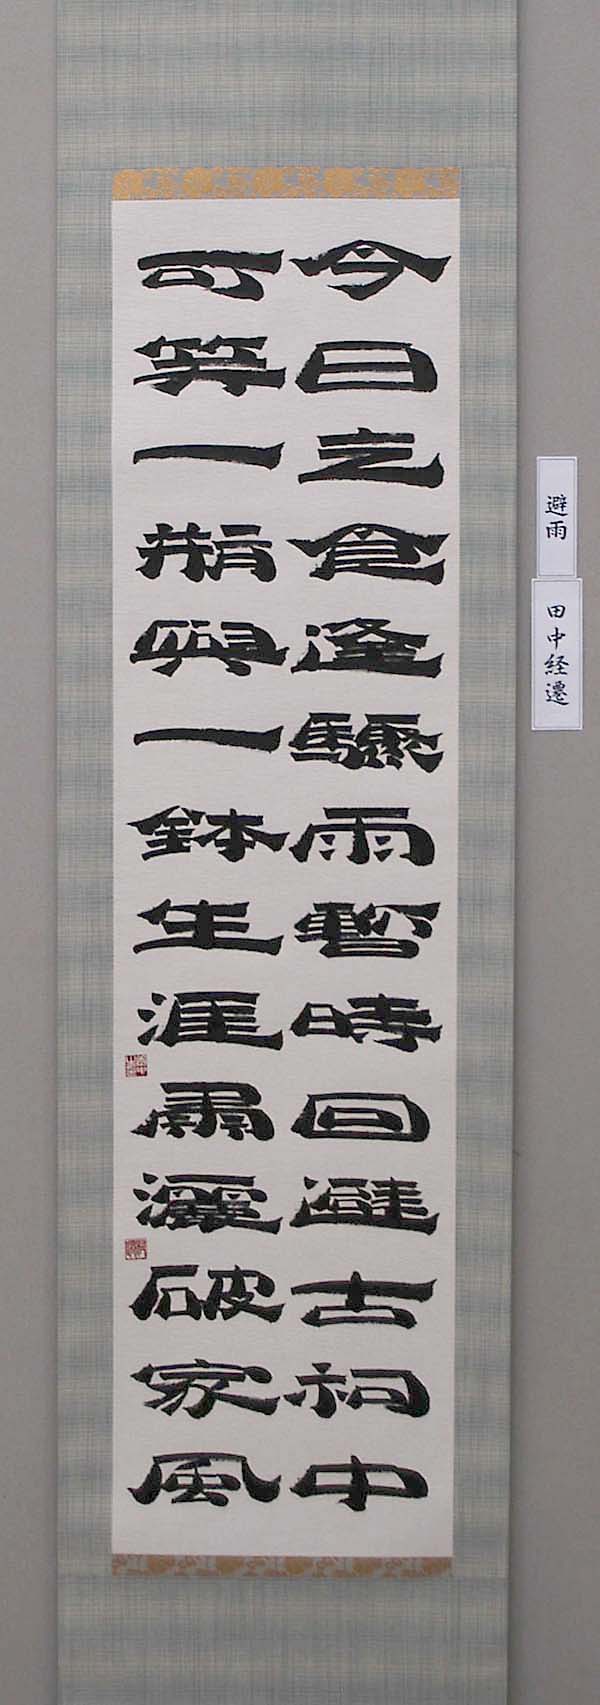 今日乞食逢驟雨暫時回避古祠中
可笑一瓶與一鉢生涯蕭灑破家風
避雨
田中経遷